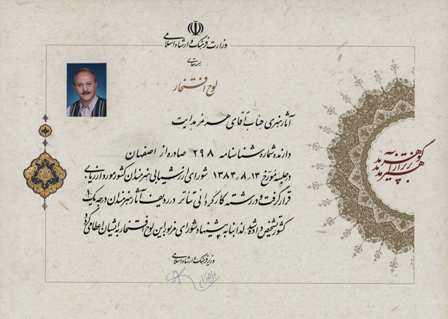 وزارت فرهنگ و ارشاد اسلامی
بسمه تعالی
لوح افتخار
آثار هنری جناب آقای
دارنده شماره شناسنامه ۲۹۸ صادره از اصفهان
در جلسه مورخ ۱۳۸۳٫۸٫۱۳ شورای ارزشیابی هنرمندان کشور مورد ارزیابی
قرار گرفت و در رشته کارگردانی تئاتر در ردیف آثار هنرمندان درجه یک
کشور تشخیص داده شد. لذا بنا به پیشنهاد شورای مزبور این لوح افتخار به ایشان اعطا می‌گردد
وزیر فرهنگ و ارشاد اسلامی